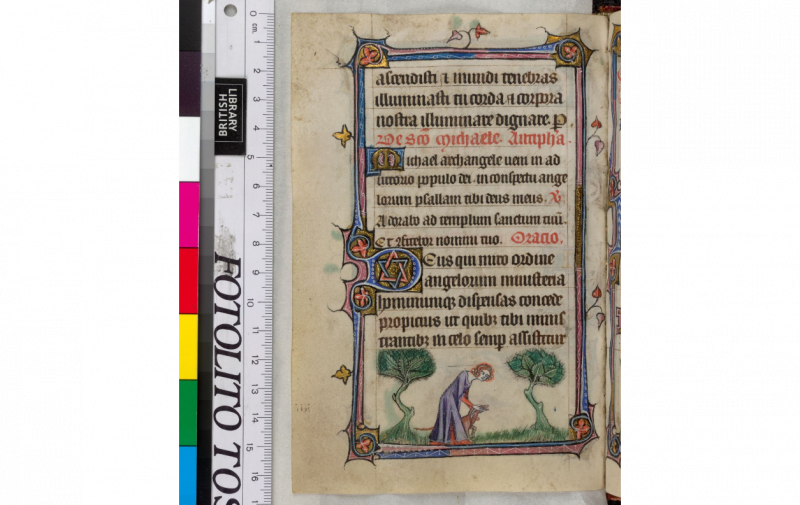 ascendisti ⁊ mundi tenebras
illuminasti tu corda ⁊ corpora
nostra illuminare dignare. P
De Sc̃o Michaele. Antipha.
Michael archangele ueni in ad
iutorio populo dei. in conspectu ange
lorum psallam tibi deus meus. V̉
Adorabo ad templum sanctum tuũ.
Et ꝯfitebor nomini tuo. Oratio.
Deus qui miro ordine
angelorum ministeria
hominumq; dispensas concede
propicius ut quibꝫ tibi minis
trantibꝫ in celo semꝑ assistitur
BRITISH
LIBRARY
FOTOLITO TOS
0 cm. 1 2 3 4 5 6 7 8 9 10 11 12 13 14 15 16 1